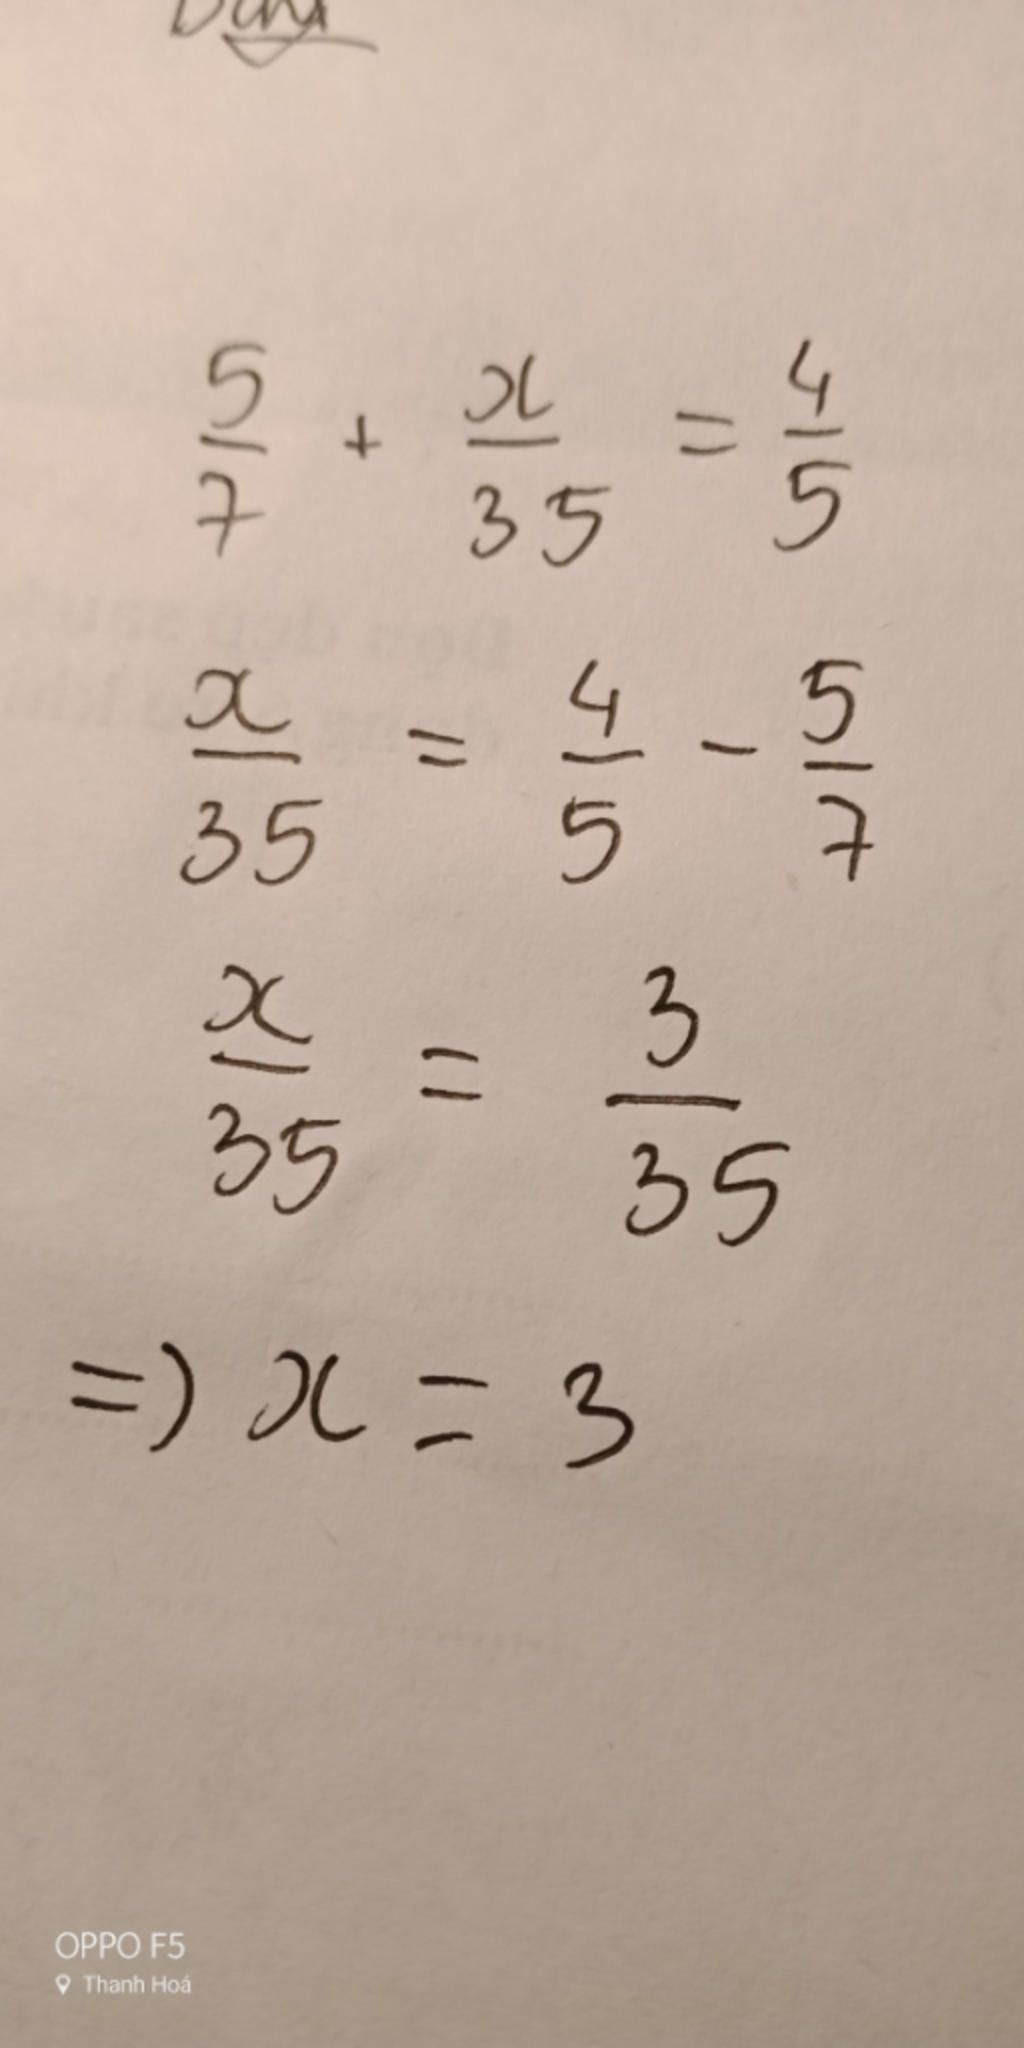 5/7 + x/35 = 4/5
x/35 = 4/5 - 5/7
x/35 = 3/35
=) x = 3
OPPO F5
Thanh Hoá